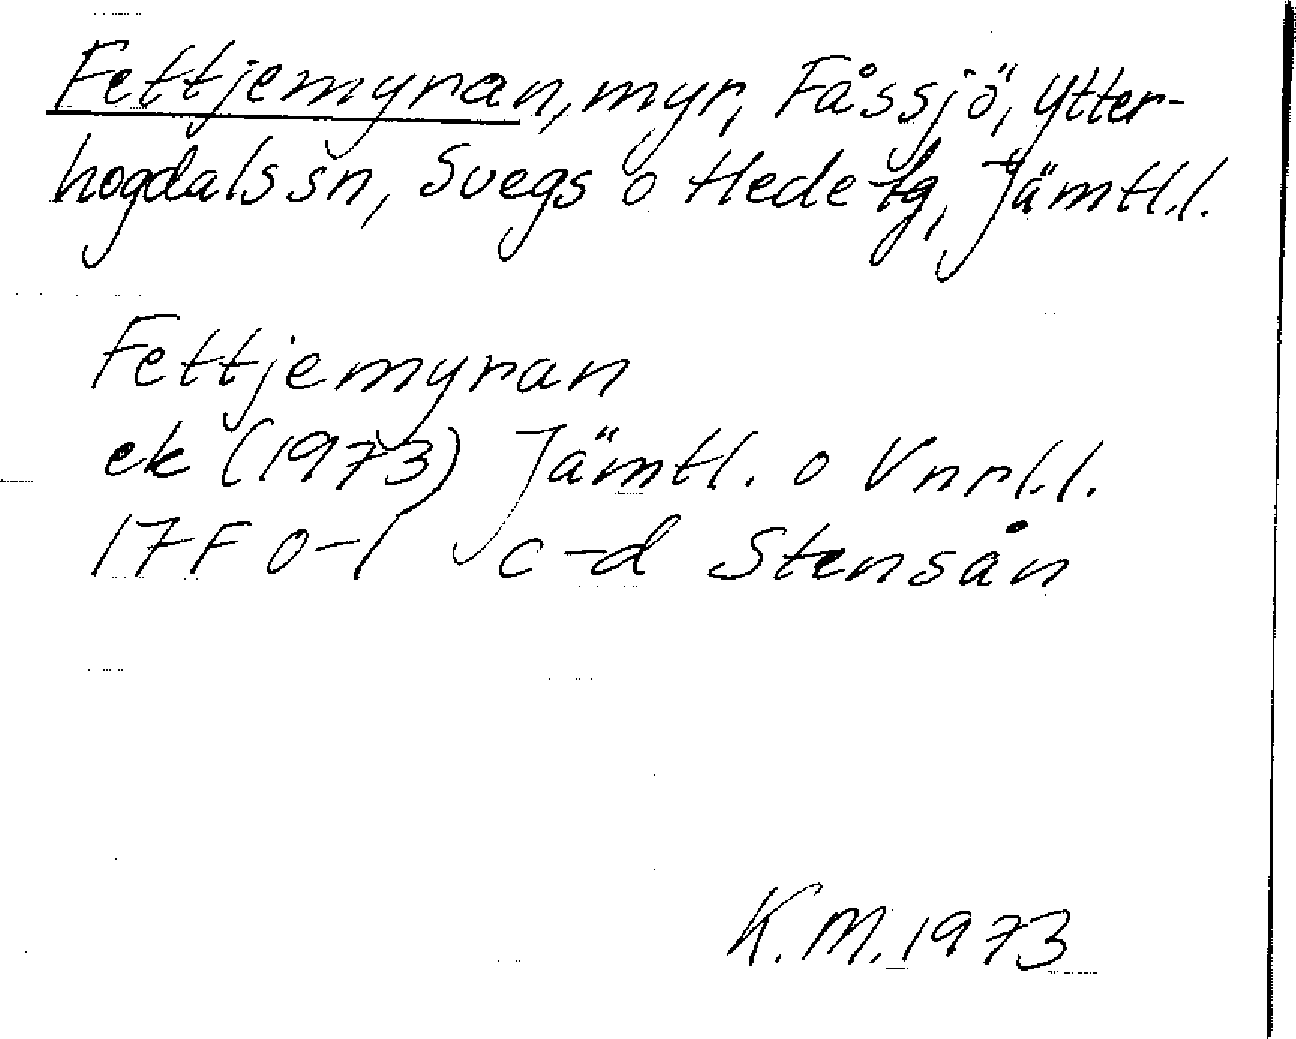 Fettjemyran, myr, Fåssjö, Ytter-
hogdals sn, Svegs o Hede tg, Jämtl.l.
Fettjemyran
ek (1973) Jämtl. o Vnrl.l.
17F 0-1 c-d Stensån
K.M. 1973